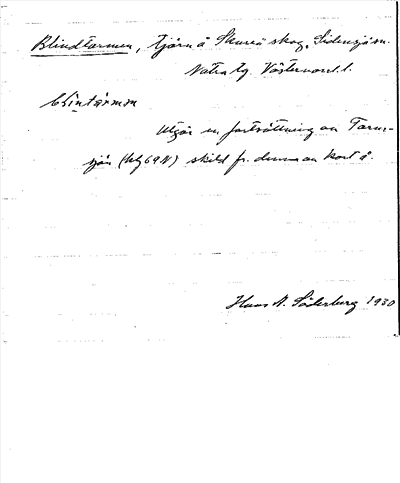 Blindtarmen, tjärn å Skureå skog, Sidensjö sn.
Nätra tg. Västernorrl. l.
blintármɷn
Utgör en fortsättning av Tarm-
sjön (blg 69N) skild fr. denna av kort å.
Hans N. Söderberg 1930